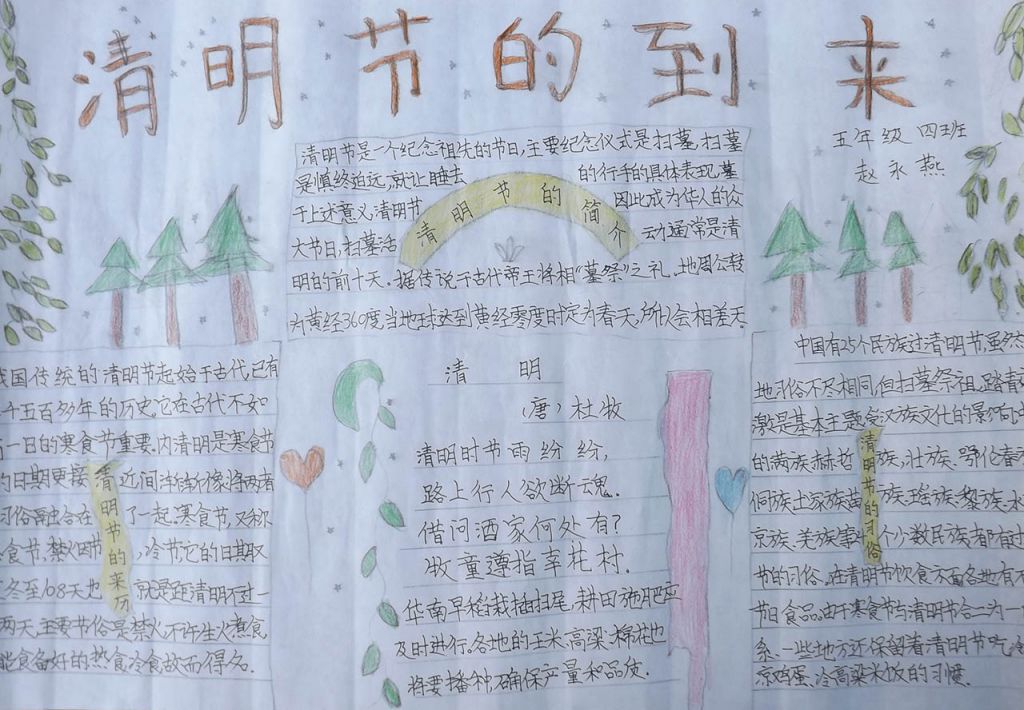 清明节的到来
五年级 四班
赵永燕
清明节是一个纪念祖先的节日,主要纪念仪式是扫墓,扫墓
是慎终追远,就让睦去 的行手的具体表现,墓
于上述意义,清明节 因此成为华人的众
大节日,扫墓活 动通常是清
明的前十天.据传说于古代帝王将相“墓祭”之礼,地周公转
为黄经360度,当地球达到黄经零度时定为春天,所以会相差天.
清明节的简介
国传统的清明节起始于古代,已有
千五百多年的历史,它在古代不如
一日的寒食节重要,内清明是寒食节
日期更接 近间,洋续 像将两者
习俗 合在 了一起.寒食节,又称
食节,禁火节 ,冷节它的日期又
冬至108天也 就是距清明不过一
两天,主要节俗是禁火不许生火煮食
能食备好的热食冷食故而得名.
清明节的来历
清 明
(唐) 杜牧
清明时节雨纷纷,
路上行人欲断魂.
借问酒家何处有?
牧童遵指幸花村.
华南早稻栽插扫尾,耕田施肥应
及时进行.各地的玉米高梁,棉花也
将要播种,确保产量和品质.
中国有25个民族过清明节,虽然
地习俗不尽相同,但扫墓祭祖,踏青
是基本主题.受汉族文化的影响,
的满族.赫哲 族,壮族.鄂伦春
侗族土家族苗 族瑶族.黎族.水
京族.羌族 个少数民族都有过
节的习俗.在清明节饮食不 各地有
节日食品.由于寒食节与清明节合二为一
系.一些地方还保留着清明节吃冷
凉鸡蛋、冷高梁米饭的习惯.
清明节的习俗